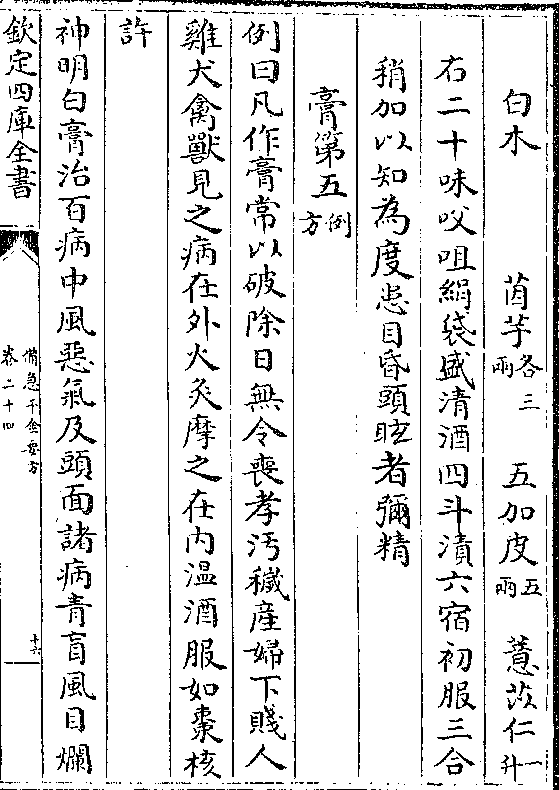 白术　茵芋各三兩　五加皮五兩　薏苡仁一升
右二十味㕮咀絹袋盛清酒四斗漬六宿初服三合
稍加以知為度患目昏頭眩者彌精
膏第五例方
例曰凡作膏常以破除日無令喪孝汚穢産婦下賤人
雞犬禽獸見之病在外火灸摩之在内温酒服如棗核
許
神明白膏治百病中風惡氣及頭面諸病青盲風目爛
欽定四庫全書
備急千金要方
卷二十四
十六